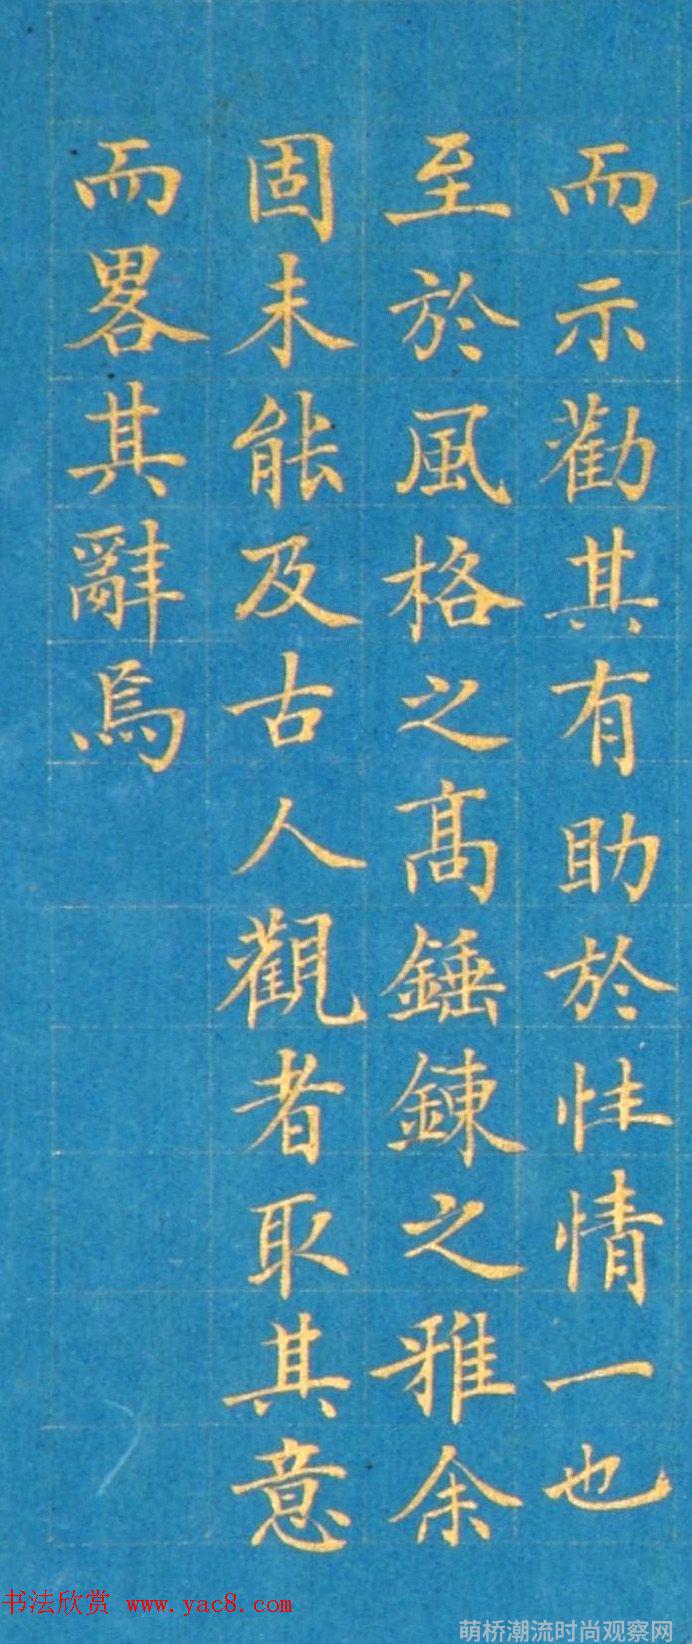 而示勸其有助於性情一也
至於風格之高錘鍊之雅余
固未能及古人觀者取其意
而畧其辭焉
书法欣赏 www.yac8.com
萌桥潮流时尚观察网